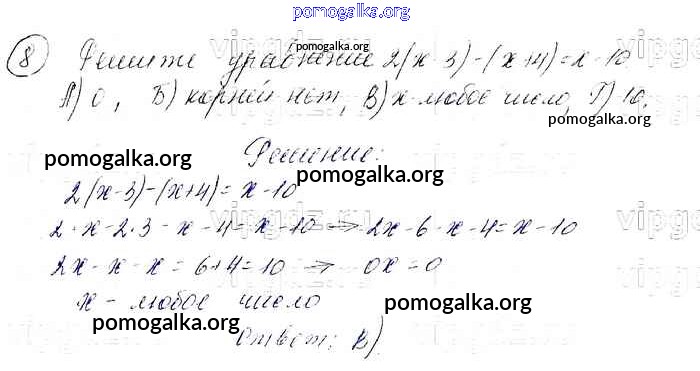 pomogalka.org
8 Решите уравнение 2(x-3)-(x+4)=x-10
pomogalka.org
А) 0, Б) корней нет, В) x-любое число, Г) 10.
pomogalka.org
Решение:
pomogalka.org
pomogalka.org
2(x-3)-(x+4)=x-10
2·x-2·3-x-4=x-10 ⇒ 2x-6-x-4=x-10
2x-x-x=6+4=10 ⇒ 0x=0
x-любое число
pomogalka.org
pomogalka.org
Ответ: В)